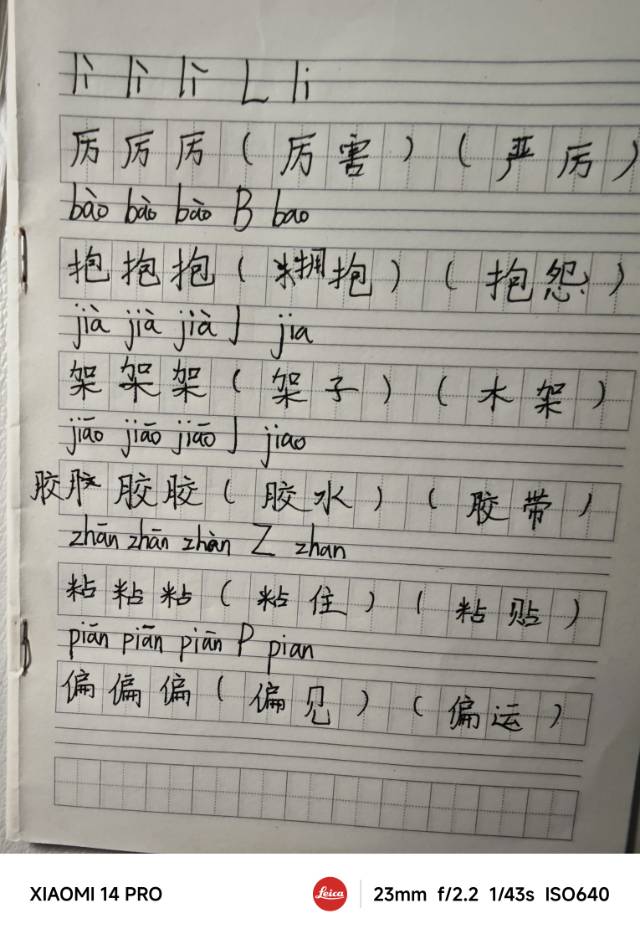 lì lì lì L li
厉 厉 厉 ( 厉 害 ) ( 严 厉 )
bào bào bào B bao
抱 抱 抱 ( 拥 抱 ) ( 抱 怨 )
jià jià jià J jia
架 架 架 ( 架 子 ) ( 木 架 )
jiāo jiāo jiāo J jiao
胶 胶 胶 胶 ( 胶 水 ) ( 胶 带 )
zhān zhān zhān Z zhan
粘 粘 粘 ( 粘 住 ) ( 粘 贴 )
piān piān piān P pian
偏 偏 偏 ( 偏 见 ) ( 偏 运 )
XIAOMI 14 PRO Leica 23mm f/2.2 1/43s ISO640